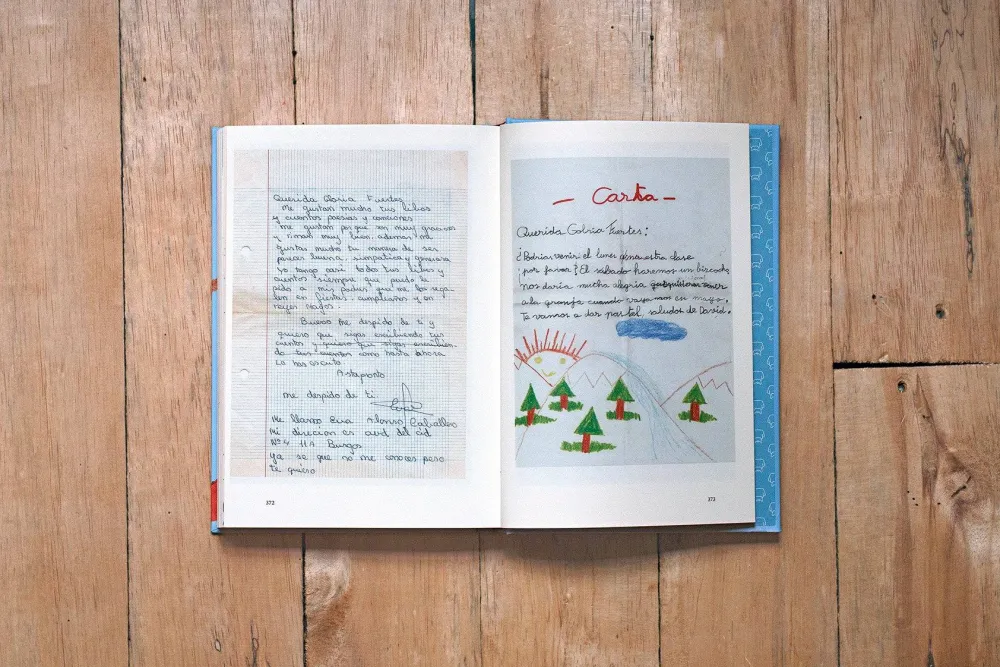 Querida Gloria Fuertes
me gustan mucho tus libros
y cuentos poesias y canciones
me gustan porque son muy graciosos
y riman muy bien. ademas me
gustas mucho tu manera de ser
pareces buena, simpatica y generosa
yo tengo casi todos tus libros y
cuentos siempre que puedo le
pido a mis padres que me los rega-
len en fiestas, cumpleaños y en
reyes magos.
Bueno me despido de ti y
quiero que sigas escribiendo tus
cuentos y quiero que sigas escribien-
do tus cuentos como hasta ahora
lo has escrito
Astapronto
me despido de ti
Me llamo Eva Alonso Caballero
Mi direcion es avd del cid
Nº 4 11A Burgos
ya se que no me conoces pero
te quiero
372
— Carta —
Querida Golria Fuertes:
¿Podrias venir el lunes a nuestra clase
por favor? El sabado haremos un bizcocho
nos daria mucha alegria
a la granja cuando vayamos en mayo.
Te vamos a dar pastel, saludos de David.
373